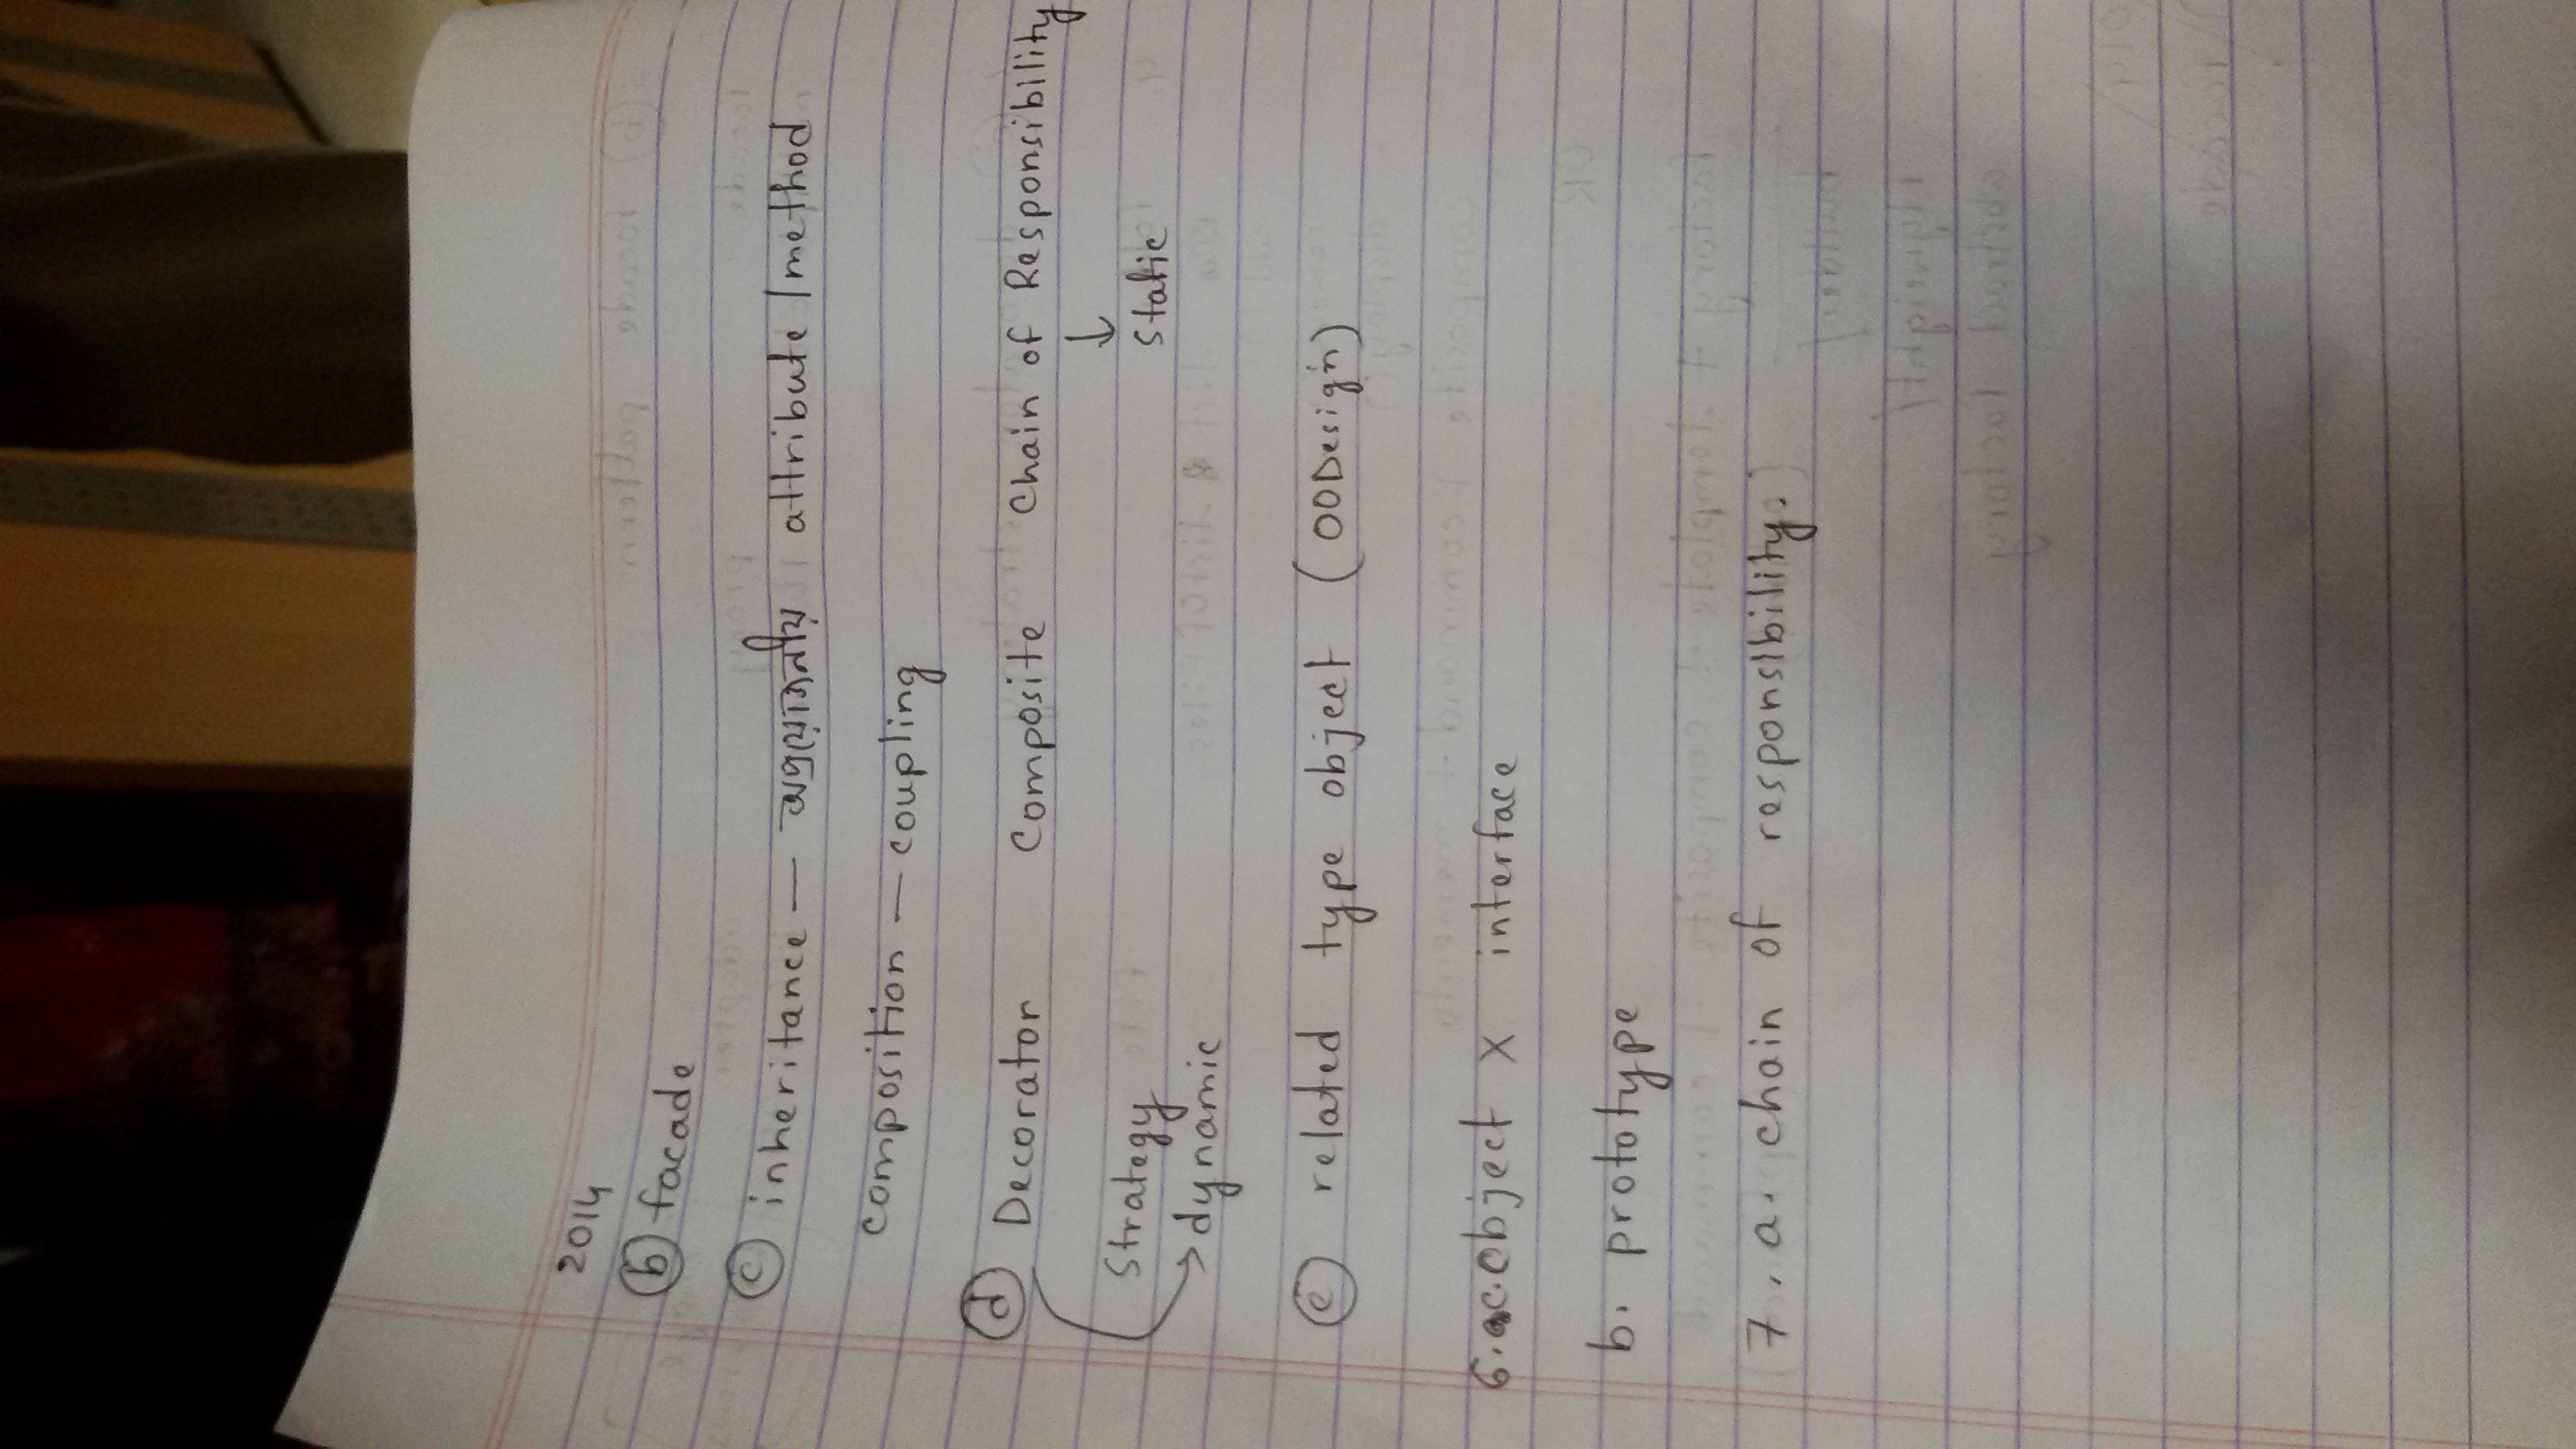 2014
ⓑ facade
ⓒ inheritance — অপ্রয়োজনীয় attribute / method
composition — coupling
ⓓ Decorator Composite Chain of Responsibility
↓
Strategy Static
→ dynamic
ⓔ related type object (OODesign)
6. c. object x interface
b. prototype
7. a. chain of responsibility.